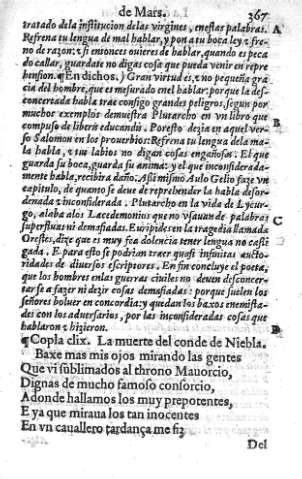 de Mars. 367
tratado dela institucion de las virgines, enestas palabras. A
Refrena tu lengua de mal hablar, y pon a tu boca ley z fre-
no de razon: z si entonces ouieres de hablar, quando es peca
do callar, guardate no digas cosa que pueda venir en repre
hension. ¶ En dichos.) Gran virtud es, z no pequeña gra
cia del hombre, que es mesurado enel hablar: porque la des-
concertada habla trae consigo grandes peligros, segun por
muchos exemplos demuestra Plutarcho en vn libro que B
compuso de liberis educandis. Poresto dezia en aquel ver-
so Salomon en los prouerbios: Refrena tu lengua dela ma-
la habla, z tus labios no digan cosas engañosas: El que
guarda su boca, guarda su anima: y el que inconsiderada-
mente habla, recibira daño. Assi mismo Aulo Gelio fize vn
capitulo, de quanto se deue de reprehender la habla desor-
denada z inconsiderada. Plutarcho en la vida de Lycur-
go, alaba alos Lacedemonios que no vsauan de palabras C
superfluas ni demasiadas. Euripides en la tragedia llamada
Orestes, dize que es muy fea dolencia tener lengua no casti
gada. E para esto se podrian traer quasi infinitas aucto-
ridades de diuersos escriptores. En fin concluye el poeta,
que los hombres enlas guerras ciuiles no deuen desconcer-
tarse a fazer ni dezir cosas demasiadas: porque suelen los
señores boluer en concordia: y quedan los baxos enemista-
dos con los aduersarios, por las inconsideradas cosas que
hablaron z hizieron. D
¶ Copla clix. La muerte del conde de Niebla.
Baxe mas mis ojos mirando las gentes
Que vi sublimados al throno Mauorcio,
Dignas de mucho famoso consorcio,
Adonde hallamos los muy prepotentes,
E ya que miraua los tan inocentes
En vn cauallero tardança me fiz,
Del